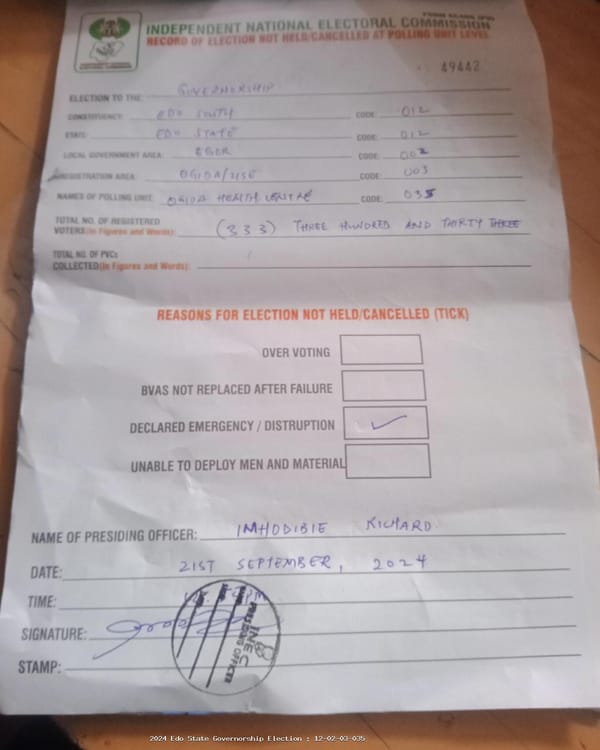 FORM EC40G (PU)
INDEPENDENT NATIONAL ELECTORAL COMMISSION
RECORD OF ELECTION NOT HELD/CANCELLED AT POLLING UNIT LEVEL
49442
ELECTION TO THE: GOVERNORSHIP
CONSTITUENCY: EDO SOUTH CODE: 012
STATE: EDO STATE CODE: 012
LOCAL GOVERNMENT AREA: EGOR CODE: 002
REGISTRATION AREA: OGIDA/USE CODE: 003
NAMES OF POLLING UNIT: OGIDA HEALTH CENTRE CODE: 035
TOTAL NO. OF REGISTERED
VOTERS(In Figures and Words): (333) THREE HUNDRED AND THIRTY THREE
TOTAL NO. OF PVCs
COLLECTED(In Figures and Words):
REASONS FOR ELECTION NOT HELD/CANCELLED (TICK)
OVER VOTING
BVAS NOT REPLACED AFTER FAILURE
DECLARED EMERGENCY / DISTRUPTION ✓
UNABLE TO DEPLOY MEN AND MATERIAL
NAME OF PRESIDING OFFICER: IMHODIBIE RICHARD
DATE: 21ST SEPTEMBER, 2024
TIME:
SIGNATURE:
STAMP:
INEC
PRESIDING OFFICER
2024 Edo State Governorship Election : 12-02-03-035